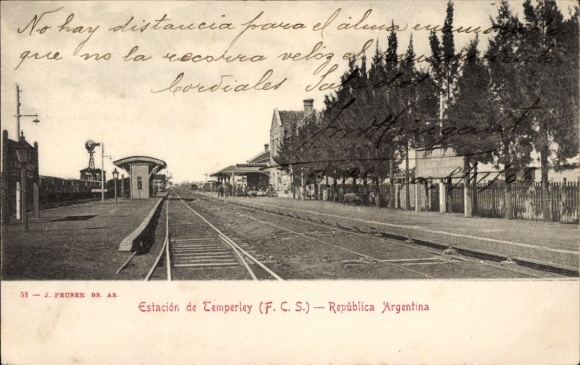 No hay distancia para el alma enamorada
que no la recorra veloz el
Cordiales Saludos
51 — J. PEUSER BS. AS.
Estación de Temperley (F. C. S.) — República Argentina